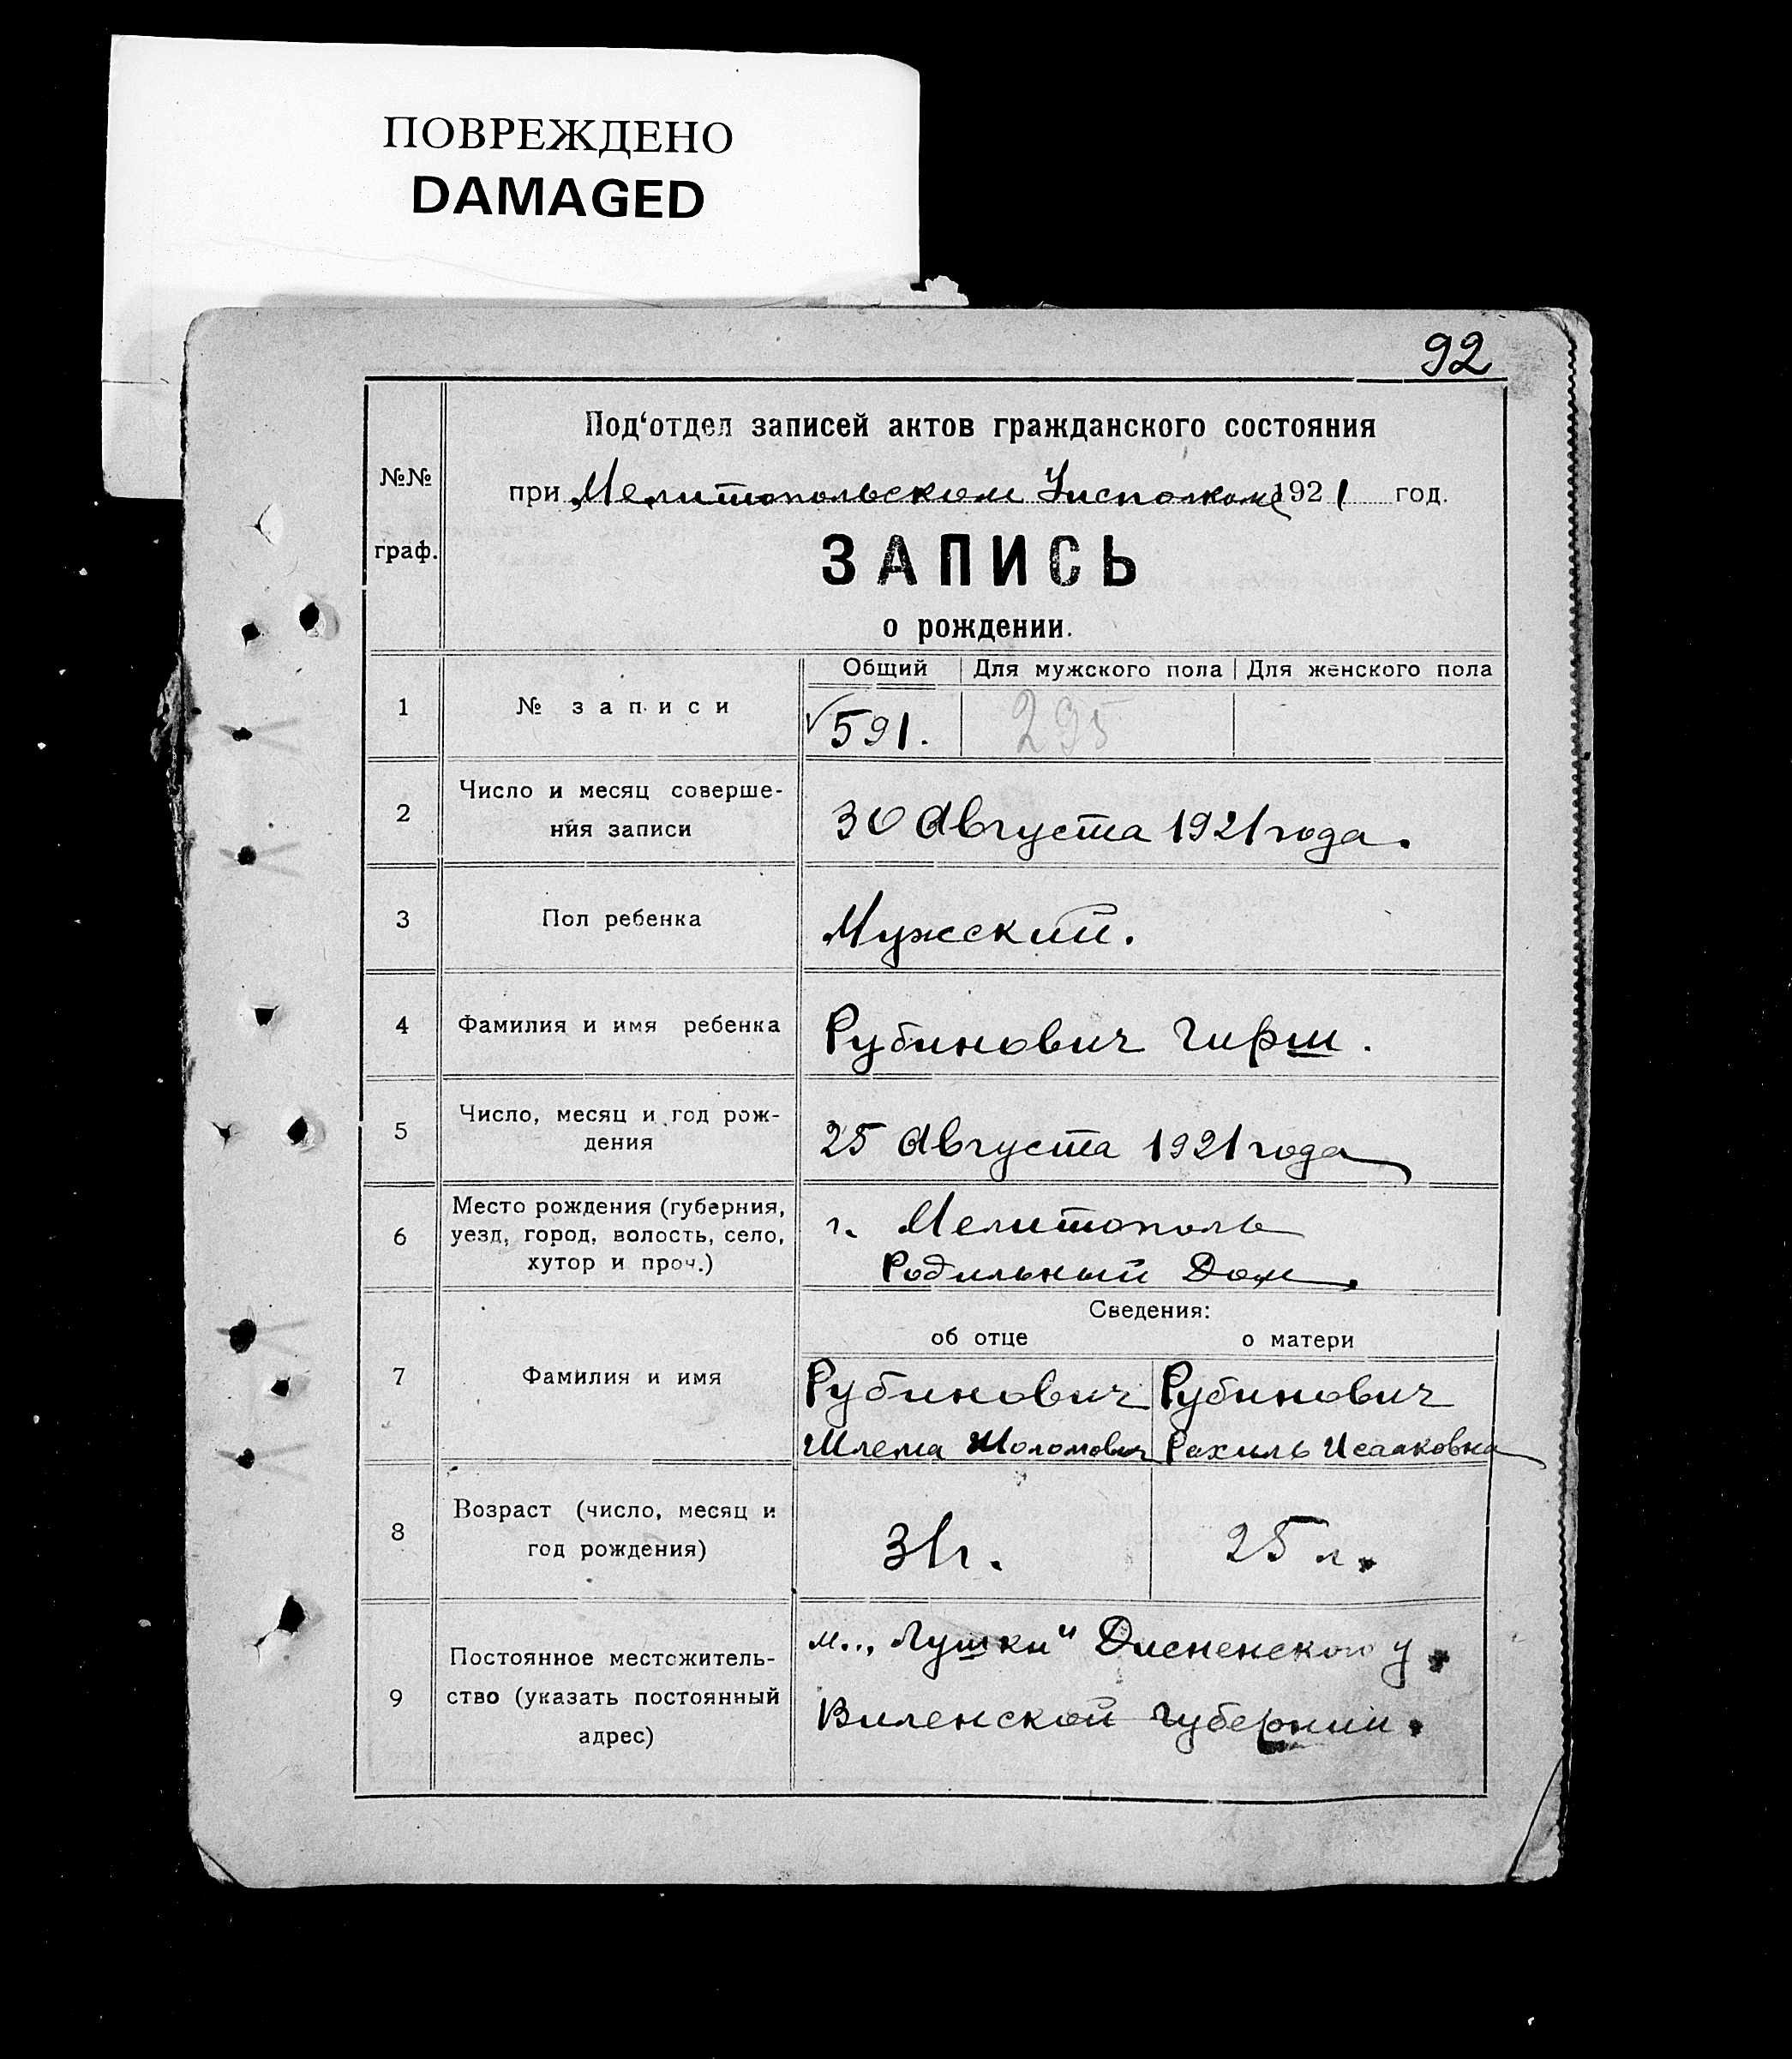 ПОВРЕЖДЕНО
DAMAGED
92
Под‘отдел записей актов гражданского состояния
№№ граф.
при Мелитопольском Уисполкоме 1921 год.
ЗАПИСЬ
о рождении.
Общий Для мужского пола Для женского пола
1 № записи 591. 295
2 Число и месяц соверше-
ния записи
30 Августа 1921 года.
3 Пол ребенка Мужский.
4 Фамилия и имя ребенка Рубинович Гирш.
5 Число, месяц и год рож-
дения
25 Августа 1921 года
6 Место рождения (губерния,
уезд, город, волость, село,
хутор и проч.)
г. Мелитополь
Родильный Дом.
Сведения:
об отце о матери
7 Фамилия и имя
Рубинович Рубинович
Шлема Шоломович Рахиль Исааковна
8 Возраст (число, месяц и
год рождения)
31 г. 25 л.
9 Постоянное местожитель-
ство (указать постоянный
адрес)
м. „Лушки“ Дисненского у.
Виленской губернии.